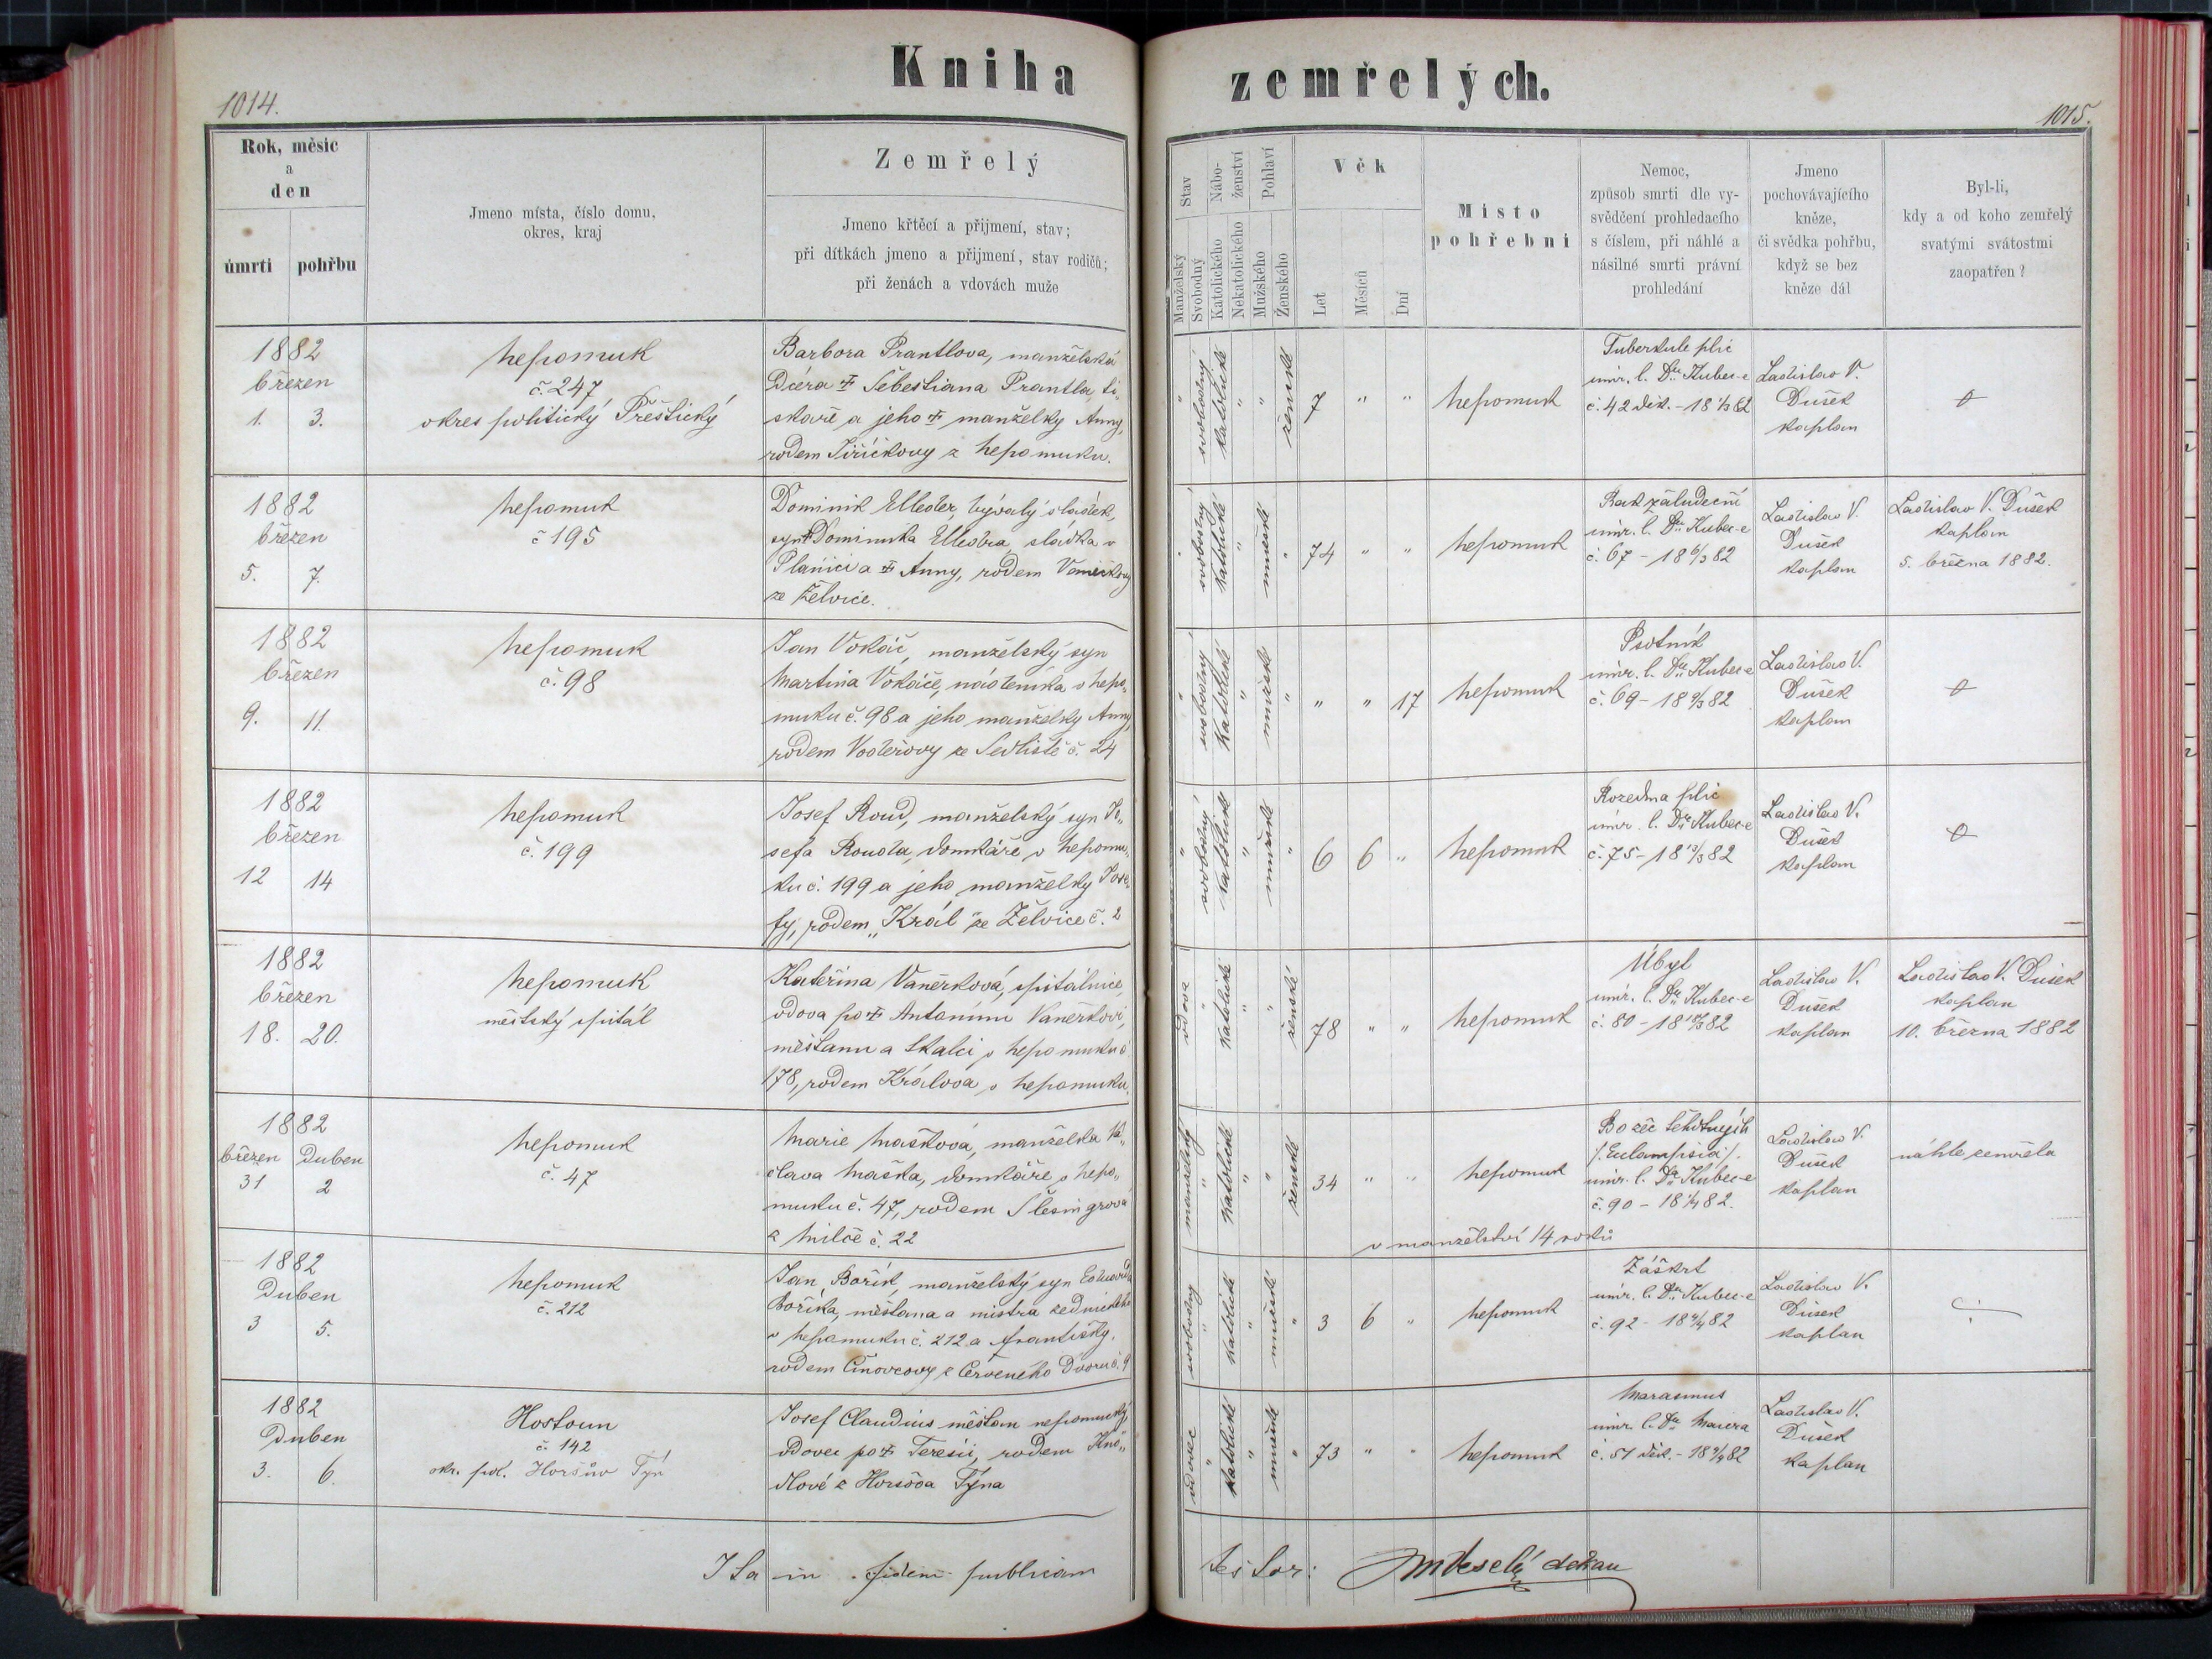 Kniha zemřelých.
1014.
1015.
Rok, měsíc
a
den
úmrtí
pohřbu
Jmeno místa, číslo domu,
okres, kraj
Zemřelý
Jmeno křtěcí a přijmení, stav;
při dítkách jmeno a přijmení, stav rodičů;
při ženách a vdovách muže
Stav
Manželský
Svobodný
Nábo-
ženství
Katolického
Nekatolického
Pohlaví
Mužského
Ženského
Věk
Let
Měsíců
Dní
Místo
pohřební
Nemoc,
způsob smrti dle vy-
svědčení prohledacího
s číslem, při náhlé a
násilné smrti právní
prohledání
Jmeno
pochovávajícího
kněze,
či svědka pohřbu,
když se bez
kněze dál
Byl-li,
kdy a od koho zemřelý
svatými svátostmi
zaopatřen?
1882
březen
1. 3.
Nepomuk
č. 247
okres politický Přeštický
Barbora Prantlova, manželská
dcéra ✝ Šebestiana Prantla, ti„
skaře a jeho ✝ manželky Anny,
rodem Jiříčkovy z Nepomuku.
" svobodný
katolické "
" ženské
7 " "
Nepomuk
Tuberkule plic
úmr. l. Dra Kubec-e
č. 42 děk. - 18 1/3 82
Ladislav V.
Dušek
kaplan
1882
březen
5. 7.
Nepomuk
č 195
Dominik Elleder, bývalý sládek,
syn ✝ Dominika Elledra sládka v
Plánici a ✝ Anny, rodem
ze Želvice.
" svobodný
katolické "
mužské "
74 " "
Nepomuk
Rak žaludeční
úmr. l. Dra Kubec-e
č. 67 - 18 6/3 82
Ladislav V.
Dušek
kaplan
Ladislav V. Dušek
kaplan
5. března 1882.
1882
březen
9. 11.
Nepomuk
č. 98
Jan Vokáč, manželský syn
Martina Vokáče, nádeníka v Nepo„
muku č. 98 a jeho manželky Anny,
rodem ze Sedliště č. 24
" svobodný
katolické "
mužské "
" " 17
Nepomuk
Psotník
úmr. l. Dra Kubec-e
č. 69 - 18 9/3 82
Ladislav V.
Dušek
kaplan
1882
březen
12 14
Nepomuk
č. 199
Josef Roud, manželský syn Jo„
sefa Rouda, domkáře v Nepomu„
ku č. 199 a jeho manželky Jose„
fy, rodem „Král ze Želvice č. 2
" svobodný
katolické "
mužské "
6 6 "
Nepomuk
Rozedma plic
úmr. l. Dra Kubec-e
č. 75 - 18 13/3 82
Ladislav V.
Dušek
kaplan
1882
březen
18. 20.
Nepomuk
městský špitál
Kateřina Vaněrková, špitálnice,
vdova po ✝ Antonínu Vaněrkovi,
měšťanu a tkalci v Nepomuku č
178, rodem Králova v Nepomuku.
vdova "
katolické "
" ženské
78 " "
Nepomuk
Úbyt
úmr. l. Dra Kubec-e
č. 80 - 18 18/3 82
Ladislav V.
Dušek
kaplan
Ladislav V. Dušek
kaplan
10. března 1882
1882
březen Duben
31 2
Nepomuk
č. 47
Marie Maškova, manželka Vá„
clava Maška, domkáře v Nepo„
muku č. 47, rodem Šlesingrova
z Milče č. 22
manželský "
katolické "
" ženské
34 " "
v manželství 14 roků
Nepomuk
Božec těhotných
/:Eclampsia:/.
úmr. l. Dra Kubec-e
č. 90 - 18 1/4 82.
Ladislav V.
Dušek
kaplan
náhle zemřela
1882
Duben
3 5.
Nepomuk
č. 212
Jan Bořík, manželský syn Eduarda
Boříka, měšťana a mistra zednického
v Nepomuku č. 212 a Františky,
rodem z Červeného Dvoru č. 9
svobodný "
katolické "
mužské "
3 6 "
Nepomuk
Záškrt
úmr. l. Dra Kubec-e
č. 92 - 18 4/4 82
Ladislav V.
Dušek
kaplan
1882
Duben
3. 6.
Hostoun
č. 142
okr. pol. Horšův Týn
Josef Claudius měšťan nepomucký
vdovec po ✝ Teresii, rodem Knö„
dlové z Horšova Týna
vdovec "
katolické "
mužské "
73 " "
Nepomuk
Marasmus
úmr. l. Dra Maiera
č. 51 děk. - 18 4/4 82
Ladislav V.
Dušek
kaplan
Ita in fidem publicam
testor: JmVeselý děkan